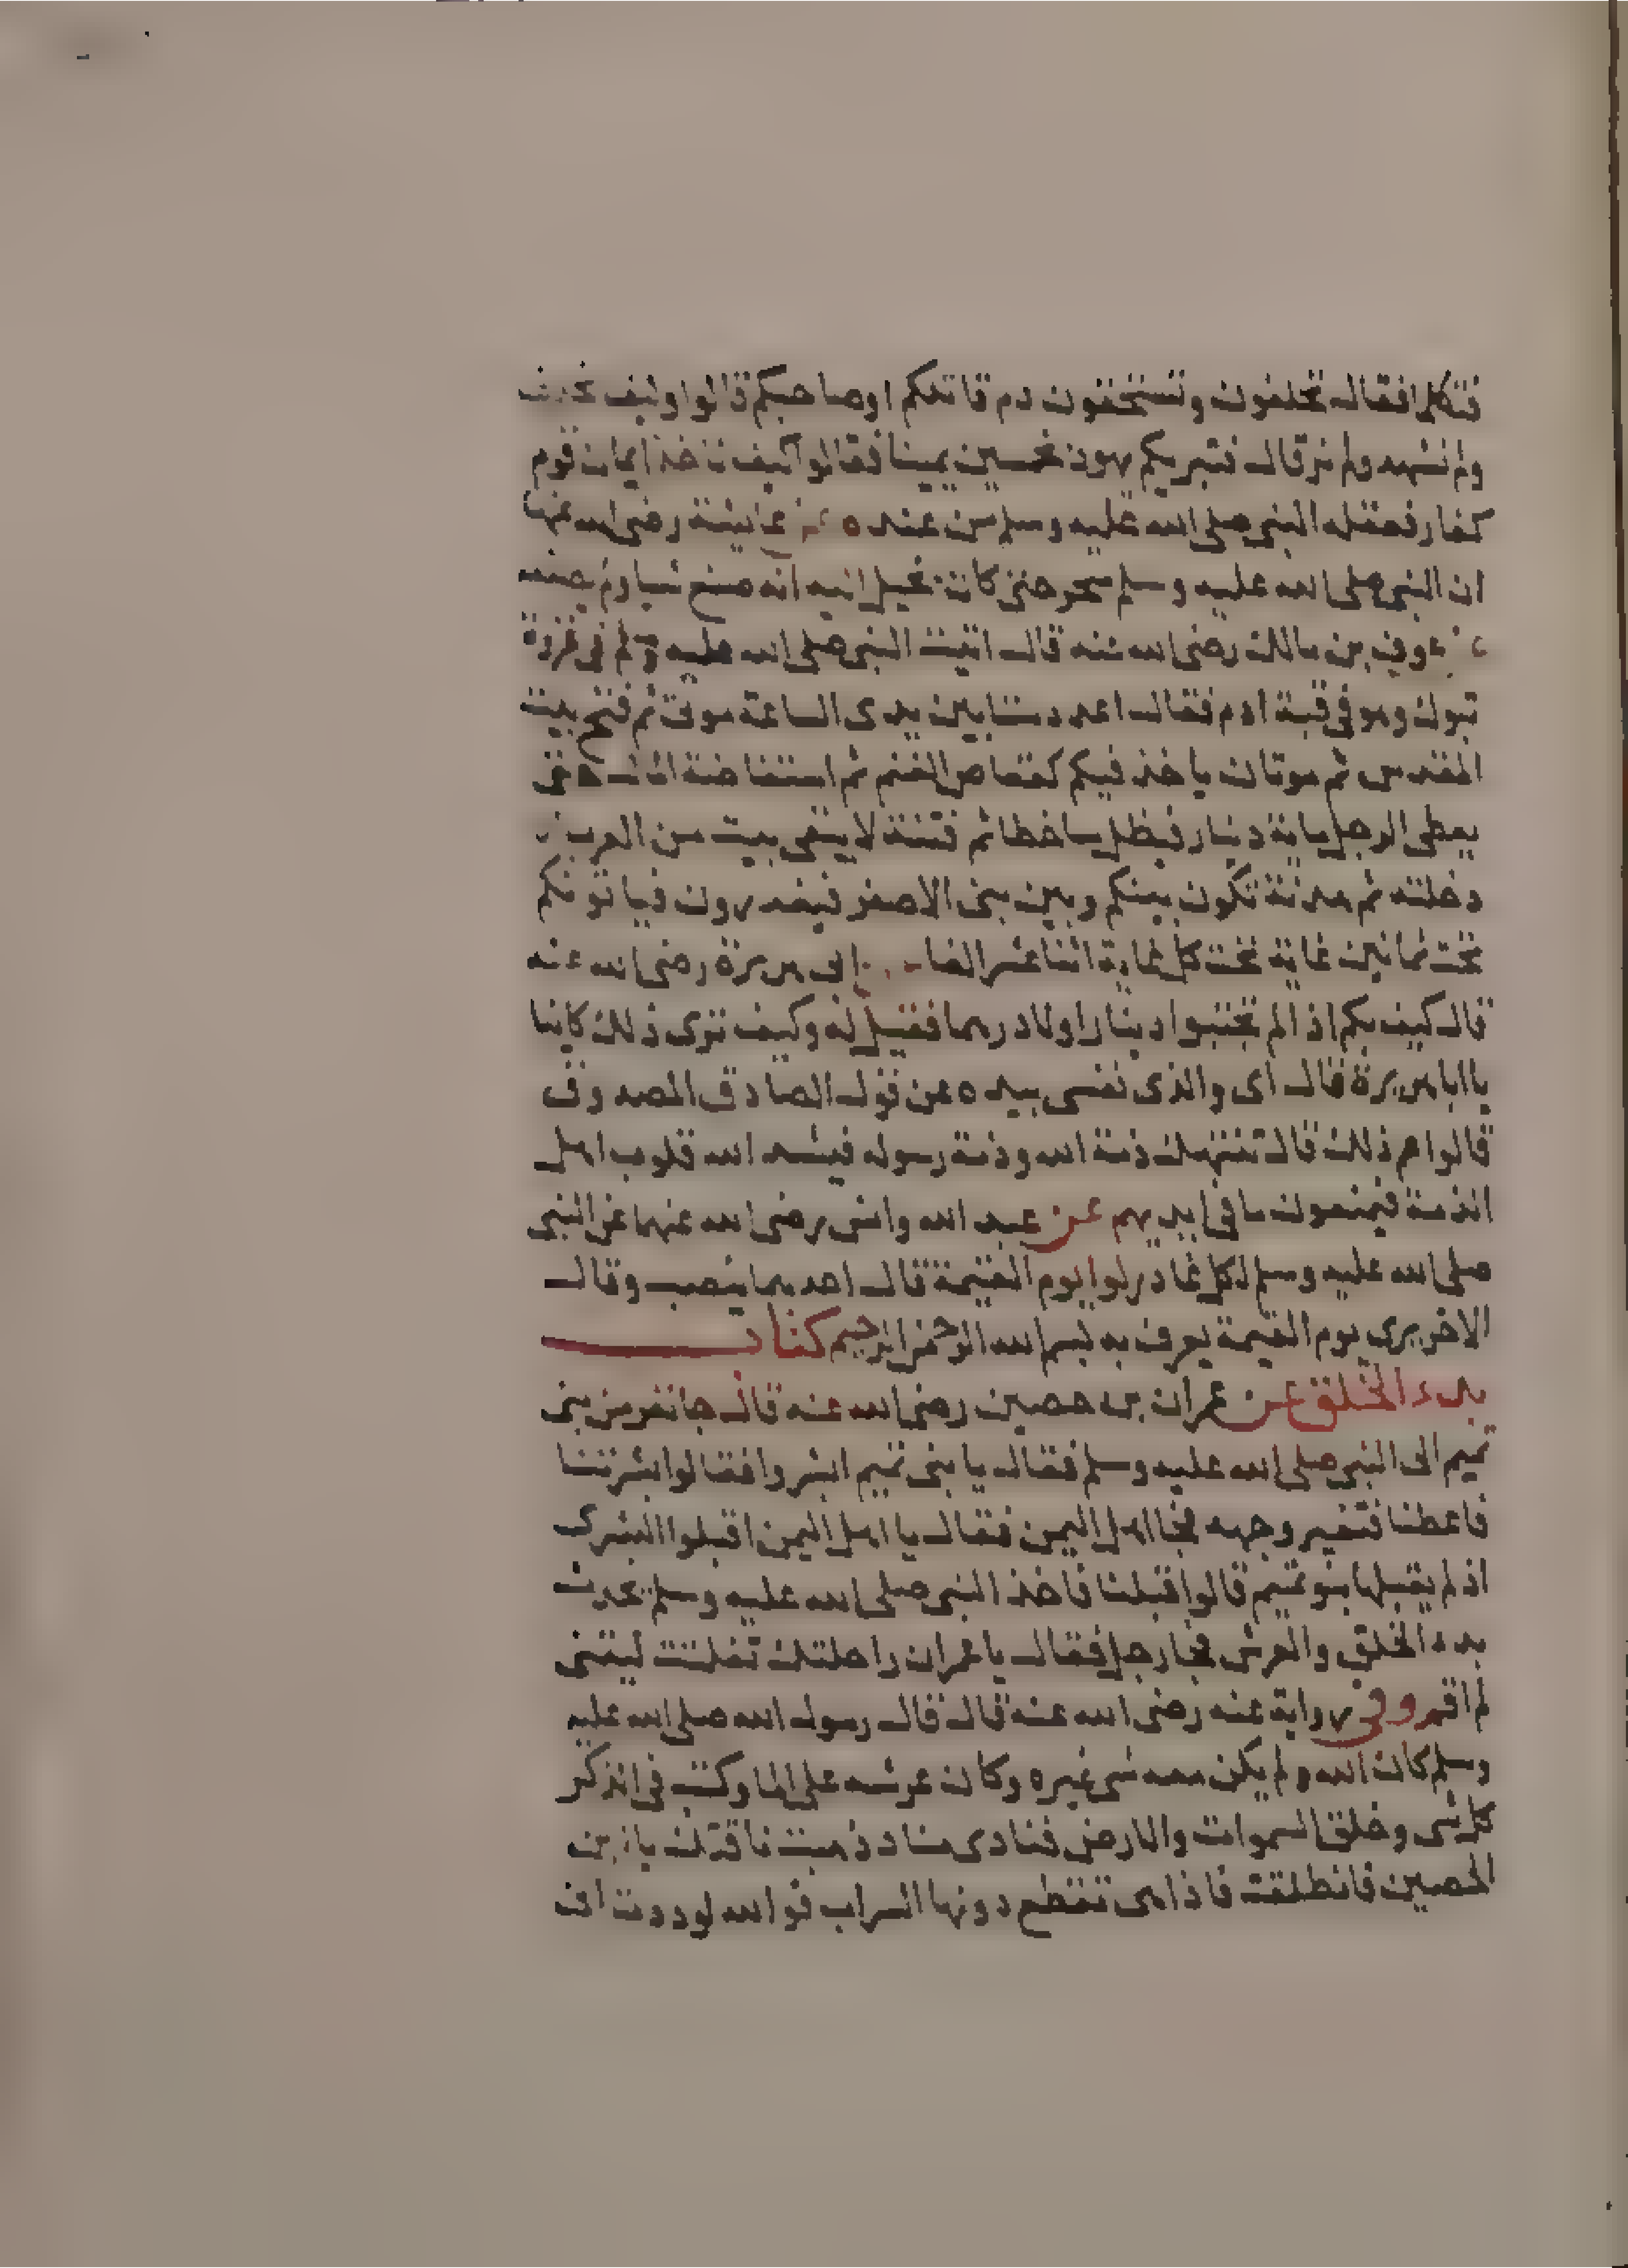 فتكلما فقال تحلفون وتستحقون دم قاتلكم او صاحبكم قالوا وكيف نحلف
ولم نشهد ولم نر قال فتبريكم يهود بخمسين يمينا فقالوا كيف ناخذ ايمان قوم
كفار فعقله النبي صلى الله عليه وسلم من عنده عن عايشة رضى الله عنها
ان النبي صلى الله عليه وسلم سحر حتى كان يخيل اليه انه صنع شيا ولم يصنعه
عن عوف بن مالك رضى الله عنه قال اتيت النبي صلى الله عليه وسلم في غزوة
تبوك وهو في قبة ادم فقال اعدد ستا بين يدى الساعة موتى ثم فتح بيت
المقدس ثم موتان ياخذ فيكم كقعاص الغنم ثم استفاضة المال حتى
يعطى الرجل ماية دينار فيظل ساخطا ثم فتنة لا يبقى بيت من العرب الا
دخلته ثم هدنة تكون بينكم وبين بنى الاصفر فيغدرون فياتونكم
تحت ثمانين غاية تحت كل غاية اثنا عشر الفا عن ابى هريرة رضى الله عنه
قال كيف بكم اذا لم تجتبوا دينارا ولا درهما فقيل له وكيف ترى ذلك كاينا
يا ابا هريرة قال اى والذى نفسى بيده عن قول الصادق المصدوق
قالوا عم ذلك قال تنتهك ذمة الله وذمة رسوله فيشد الله قلوب اهل
الذمة فيمنعون ما في ايديهم عن عبد الله وانس رضى الله عنهما عن النبي
صلى الله عليه وسلم لكل غادر لوا يوم القيمة قال احدهما ينصب وقال
الاخر يرى يوم القيمة يعرف به بسم الله الرحمن الرحيم كتاب
بدء الخلق عن عمران بن حصين رضى الله عنه قال جا نفر من بنى
تميم الى النبي صلى الله عليه وسلم فقال يا بنى تميم ابشروا فقالوا بشرتنا
فاعطنا فتغير وجهه فجا اهل اليمن فقال يا اهل اليمن اقبلوا البشرى
اذ لم يقبلها بنو تميم قالوا قبلنا فاخذ النبي صلى الله عليه وسلم يحدث
بدء الخلق والعرش فجا رجل فقال يا عمران راحلتك تفلتت ليتنى
لم اقم وفي رواية عنه رضى الله عنه قال قال رسول الله صلى الله عليه
وسلم كان الله ولم يكن معه شى غيره وكان عرشه على الما وكتب في الذكر
كل شى وخلق السموات والارض فنادى مناد ذهبت ناقتك يا ابن
الحصين فانطلقت فاذا هى تقطع دونها السراب فوالله لوددت انى